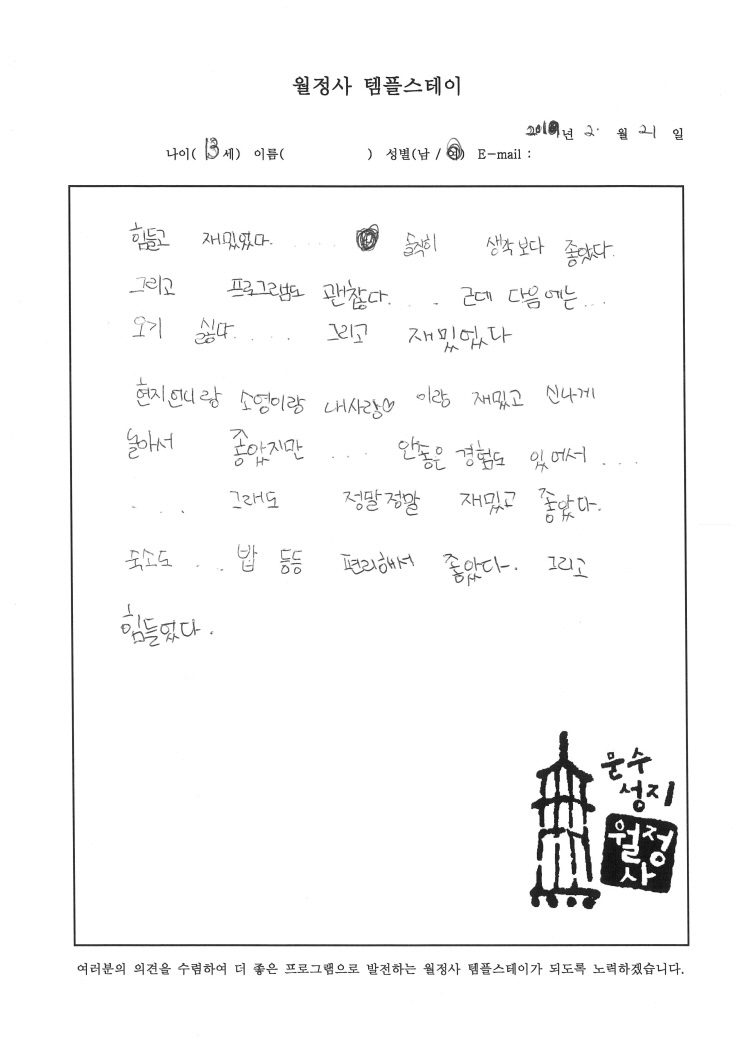 월정사 템플스테이
년 2. 월 21 일
나이( 13 세) 이름( ) 성별(남 / 여) E-mail :
힘들고 재밌었다. . . . . 솔직히 생각보다 좋았다.
그리고 프로그램도 괜찮다. . . . 근데 다음에는 . . .
오기 싫다. . . . . 그리고 재밌었다
현지언니랑 소영이랑 내사랑♡ 이랑 재밌고 신나게
놀아서 좋았지만 . . . . 안좋은 경험도 있어서 . . .
. . . 그래도 정말정말 재밌고 좋았다.
숙소도 . . 밥 등등 편리해서 좋았다. 그리고
힘들었다.
문수
성지
월정
사
여러분의 의견을 수렴하여 더 좋은 프로그램으로 발전하는 월정사 템플스테이가 되도록 노력하겠습니다.